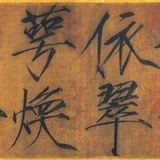 依翠
萼煥